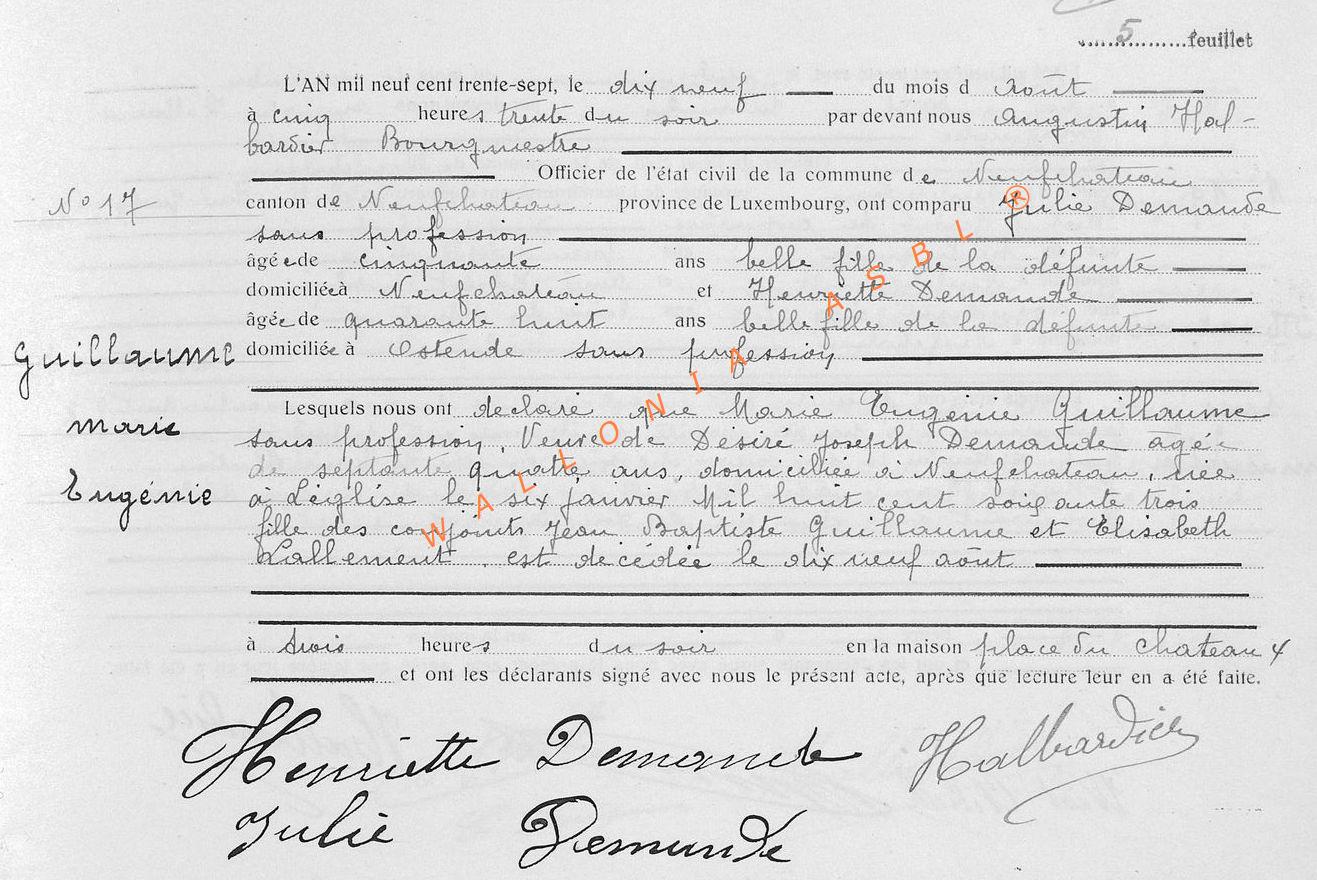 5 feuillet
L'AN mil neuf cent trente-sept, le dix neuf du mois d Août
à cinq heures trente du soir par devant nous Augustin Hal-
bardier Bourgmestre
Officier de l'état civil de la commune de Neufchateau
N° 17
canton de Neufchateau province de Luxembourg, ont comparu Julie Demande
sans profession
âgée de cinquante ans belle fille de la défunte
domiciliée à Neufchateau et Henriette Demande
âgée de quarante huit ans belle fille de la défunte
domiciliée à Ostende sans profession
Guillaume
Marie
Eugénie
Lesquels nous ont declaré que Marie Eugénie Guillaume
sans profession, Veuve de Désiré Joseph Demande agée
de septante quatre ans, domiciliée à Neufchateau, née
à Léglise le six janvier Mil huit cent soixante trois
fille des conjoints Jean Baptiste Guillaume et Elisabeth
Lallement, est decédée le dix neuf août
à trois heures du soir en la maison place du chateau 4
et ont les déclarants signé avec nous le présent acte, après que lecture leur en a été faite.
Henriette Demande Halbardier
Julie Demande
WALLONIA ASBL ®